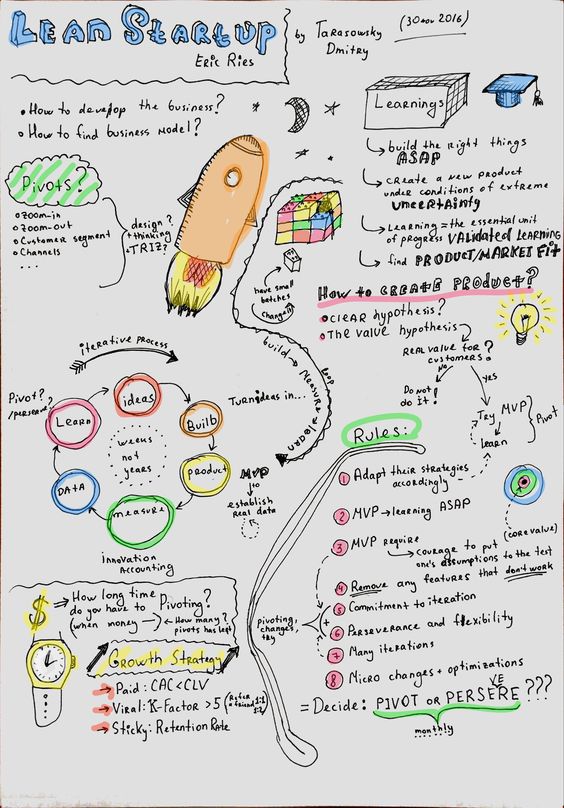 LEAN STARTUP
Eric Ries
by Tarasowsky
Dmitry
(30 nov 2016)
How to develop the business?
How to find business model?
Pivots?
Zoom-in
Zoom-out
Customer segment
Channels
...
design?
+thinking
+TRIZ?
Learnings
build the right things
ASAP
create a new product
under conditions of extreme
uncertainty
Learning = the essential unit
of progress VALIDATED LEARNING
find PRODUCT/MARKET FIT
have small
batches
change it
How to CREATE PRODUCT?
clear hypothesis?
The value hypothesis
Real value for
customers?
no
yes
Do not
do it!
Try MVP
learn
Pivot
build → Measure & learn
loop
iterative process
Pivot?
/persere?
ideas
Build
product
measure
DATA
Learn
weeks
not
years
Turn ideas in...
MVP
to
establish
real data
Innovation
Accounting
Rules:
1 Adapt their strategies
accordingly
2 MVP → learning ASAP
3 MVP require
courage to put
one's assumptions to the test
(core value)
4 Remove any features that don't work
5 Commitment to iteration
6 Perseverance and flexibility
7 Many iterations
8 Micro changes + optimizations
pivoting,
changes,
try
+
= Decide: PIVOT or PERSERE ???
VE
monthly
$
How long time
do you have to Pivoting?
(when money) ← How many?
pivots has left
Growth Strategy
Paid: CAC < CLV
Viral: K-Factor > 5 (Refer a friend 1:1
Sticky: Retention Rate